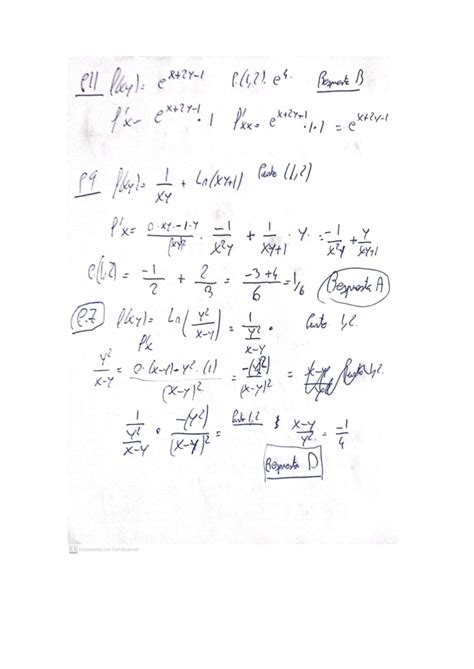 P11 f(x,y)= e^{x+2y-1} P.(1,2). e^4. Respuesta B
f'x= e^{x+2y-1} · 1 f'xx= e^{x+2y-1} · 1 · 1 = e^{x+2y-1}
P9 f(x,y)= 1/xy + Ln(xy+1) Punto (1,2)
f'x= (0·xy-1·y)/(xy)^2 · -1/x^2y + 1/(xy+1) · y = -1/x^2y + y/(xy+1)
(1,2)= -1/2 + 2/3 = (-3+4)/6 = 1/6 Respuesta A
P.7 f(x,y)= Ln(y^2/(x-y)) = 1/(y^2/(x-y)) · Punto 1,2.
f'x
y^2/(x-y) = (0·(x-y)-y^2·(1))/(x-y)^2 = -(y^2)/(x-y)^2 =
1/(y^2/(x-y)) · -(y^2)/(x-y)^2 = Punto 1,2 (x-y)/y^2 = -1/4
Respuesta D
Escaneado con CamScanner